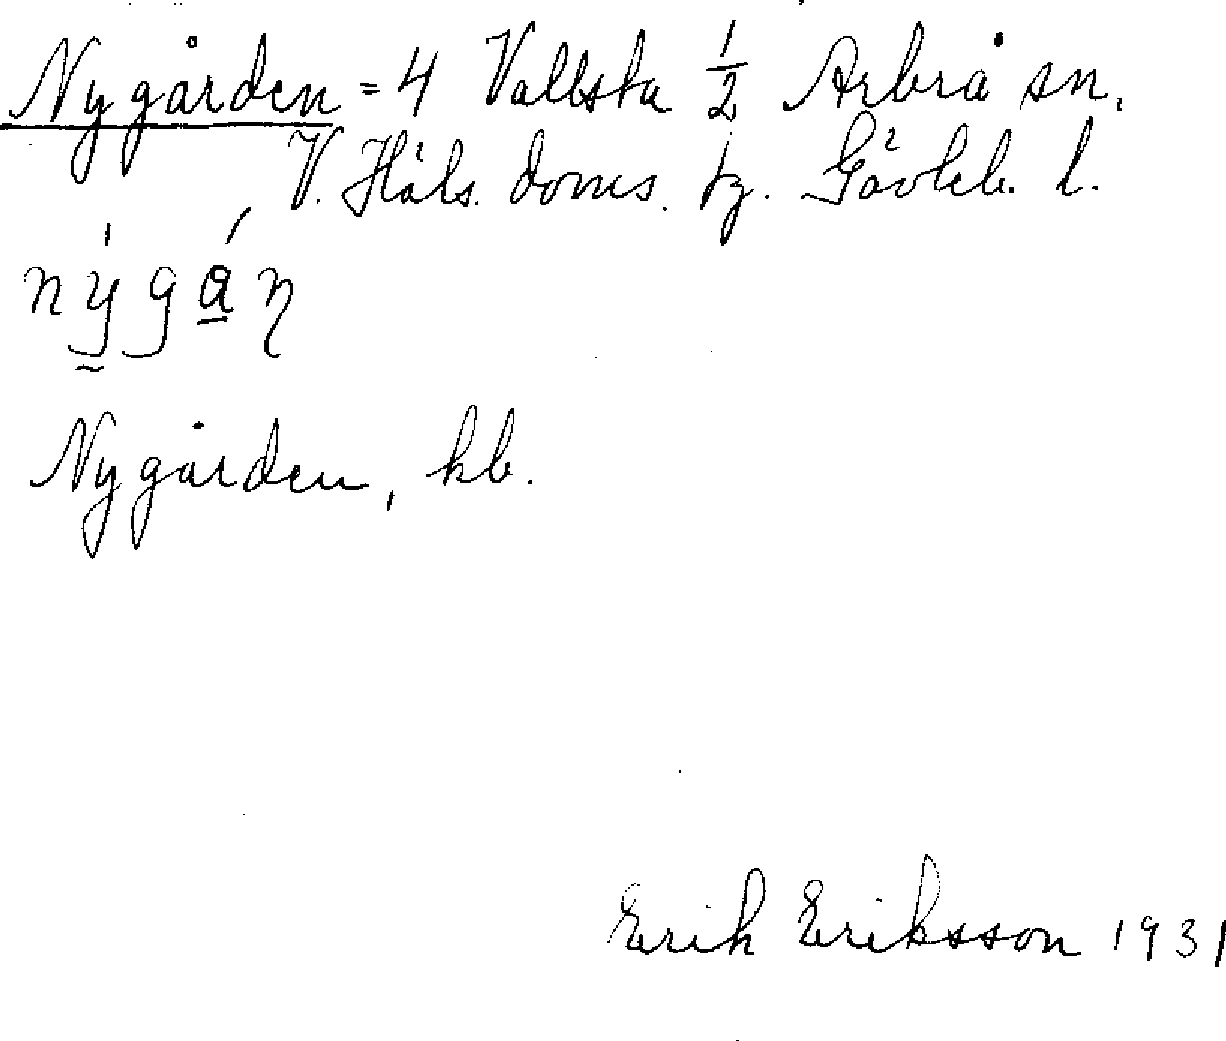 Nygården = 4 Vallsta 1/2 Arbrå sn.
V. Häls. doms. tg. Gävleb. l.
nýgán
Nygården, kb.
Erik Eriksson 1931